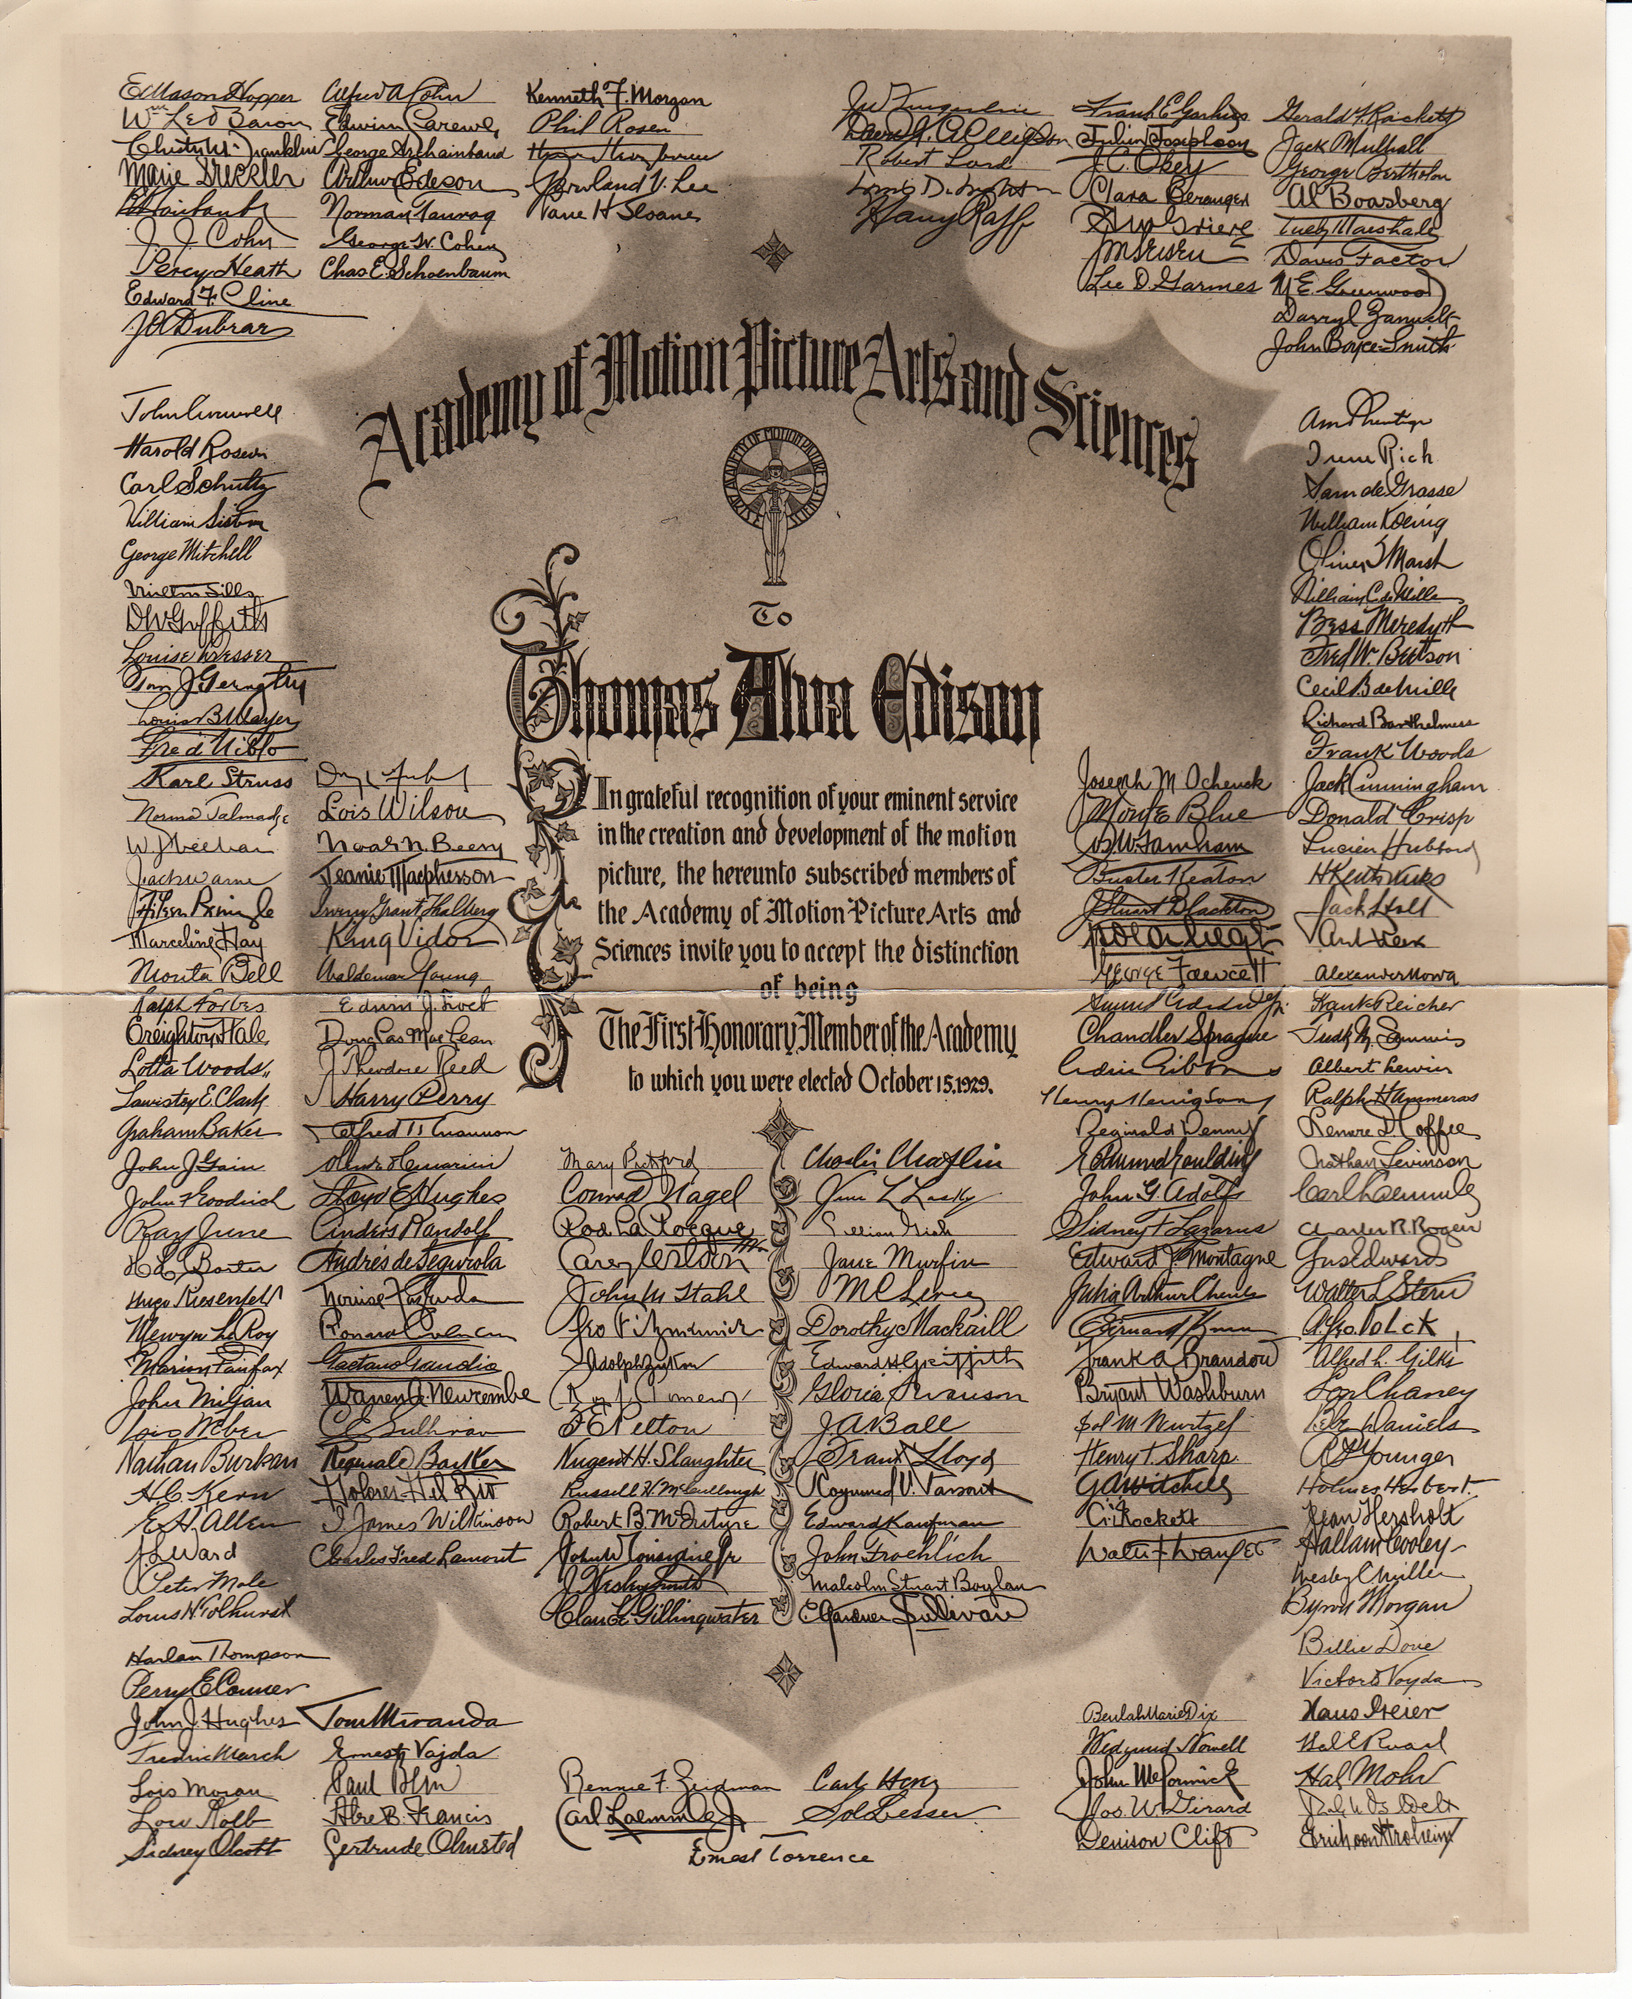 E Mason Hopper
Marie Dressler
J. J. Cohn
Percy Heath
Edward F. Cline
Alfred A Cohn
Edwin Carewe
George Archainbaud
Arthur Edeson
Norman Taurog
George W. Cohen
Chas E. Schoenbaum
Kenneth F. Morgan
Phil Rosen
Rowland V. Lee
Paul H Sloane
Robert Lord
Harry Rapf
Julien Josephson
J. C. Okey
Clara Beranger
Lee D. Garmes
Gerald F. Rackett
Jack Mulhall
George Bertholon
Al Boasberg
Tully Marshall
Davis Factor
M E. Greenwood
Darryl Zanuck
John Boyce-Smith
Academy of Motion Picture Arts and Sciences
ACADEMY OF MOTION PICTURE ARTS & SCIENCES
To
Thomas Alva Edison
In grateful recognition of your eminent service
in the creation and development of the motion
picture, the hereunto subscribed members of
the Academy of Motion Picture Arts and
Sciences invite you to accept the distinction
of being
The First Honorary Member of the Academy
to which you were elected October 15, 1929.
John Cromwell
Harold Rosson
Carl Schultz
William Sistrom
George Mitchell
Milton Sills
D W Griffith
Louise Dresser
Tom J. Geraghty
Louis B Mayer
Fred Niblo
Karl Struss
Norma Talmadge
W J Heelan
Jack Warner
Aileen Pringle
Marceline Day
Monta Bell
Ralph Forbes
Creighton Hale
Lotta Woods
Graham Baker
John J. Gain
John F Goodrich
Ray June
Hugo Riesenfeld
Mervyn LeRoy
Marion Fairfax
John Miljan
Lois Weber
Nathan Burkan
H. C. Kern
E. H. Allen
J L Ward
Peter Mole
Louis H. Tolhurst
Lois Wilson
Noah N. Beery
Jeanie Macpherson
Irving Grant Thalberg
King Vidor
Waldemar Young
Douglas MacLean
J Theodore Reed
Harry Perry
Lloyd E Hughes
Anders Randolf
Andrés de Segurola
Louise Fazenda
Ronald Colman
Gaetano Gaudio
Warren A. Newcombe
C G Sullivan
Reginald Barker
Dolores Del Rio
J. James Wilkinson
Charles Fred Lamont
Mary Pickford
Conrad Nagel
Rod La Rocque
Carey Wilson
John M Stahl
Geo Fitzmaurice
Adolph Zukor
Roy J. Pomeroy
F E Pelton
Nugent H. Slaughter
Russell H. McCullough
Robert B. McIntyre
John W Considine Jr
J. Wesley Smith
Claude L. Gillingwater
Charlie Chaplin
Jesse L Lasky
Lillian Gish
Jane Murfin
M C Levee
Dorothy Mackaill
Edward H. Griffith
Gloria Swanson
J. A. Ball
Frank Lloyd
Edward Kaufman
John Froehlich
Malcolm Stuart Boylan
C. Gardner Sullivan
Joseph M Schenck
Monte Blue
Buster Keaton
J Stuart Blackton
George Fawcett
Samuel Goldwyn
Chandler Sprague
Cedric Gibbons
Henry Henigson
Reginald Denny
Edmund Goulding
John G. Adolfi
Sidney F Lazarus
Edward J. Montagne
Frank A Brandow
Bryant Washburn
Sol M Wurtzel
Henry T. Sharp
G A Mitchell
Walter F Wanger
Irene Rich
Sam de Grasse
William Koenig
Oliver T Marsh
William C. de Mille
Bess Meredyth
Fred W. Beetson
Cecil B de Mille
Richard Barthelmess
Frank Woods
Jack Cunningham
Donald Crisp
Lucien Hubbard
H Kent Wicks
Jack Holt
Frank Reicher
Albert Lewin
Ralph Hammeras
Lenore J. Coffee
Nathan Levinson
Carl Laemmle
Charles R. Rogers
Gus Edwards
Walter L. Stern
Alfred L. Gilks
Lon Chaney
Bebe Daniels
A P Younger
Holmes Herbert
Jean Hersholt
Hallam Cooley
Wesley C Miller
Byron Morgan
Billie Dove
Victor Voyda
Hans Dreier
Hal E Roach
Hal Mohr
Erich von Stroheim
Harlan Thompson
Perry E Conner
John J. Hughes
Fredric March
Lois Moran
Sidney Olcott
Tom Miranda
Ernest Vajda
Paul Bern
Alec B. Francis
Gertrude Olmsted
Bennie F. Zeidman
Carl Laemmle Jr
Sol Lesser
Ernest Torrence
Beulah Marie Dix
Wedgwood Nowell
John McCormick
Jos. W. Girard
Denison Clift